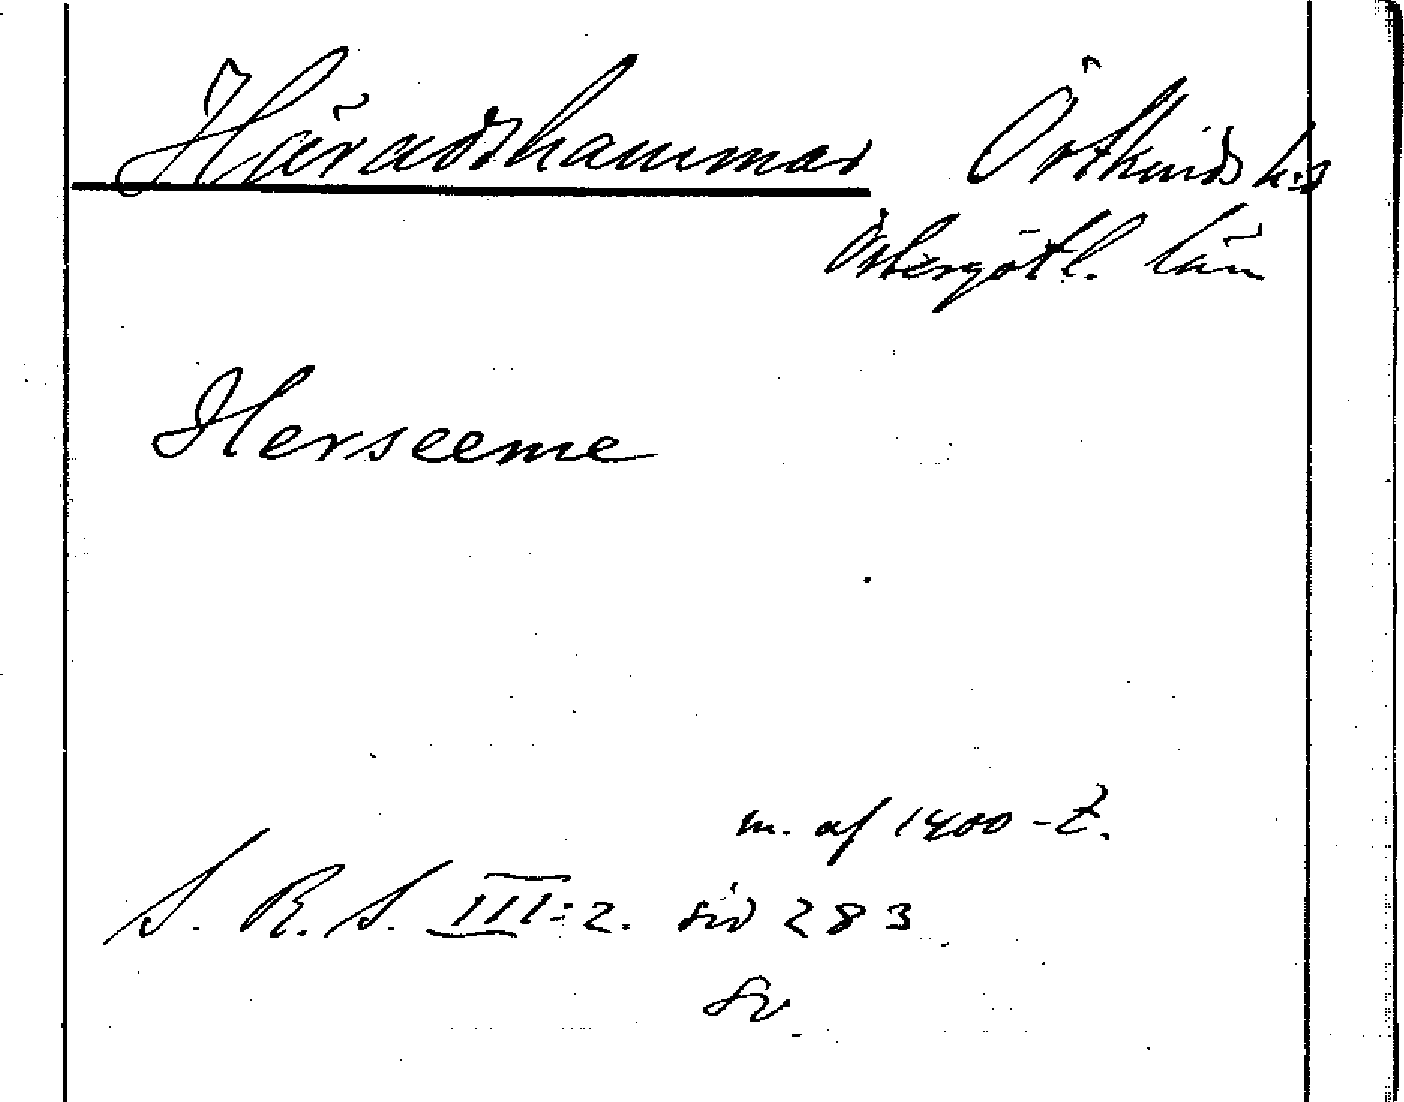 Häradshammar Östkinds h:d
Östergötl. län
Herseeme
m. af 1400-t.
S. R. S. III:2. sid 283
Sv.